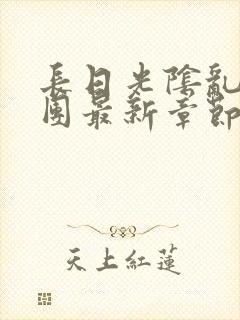 長日光陰亂
團最新章節
天上紅蓮